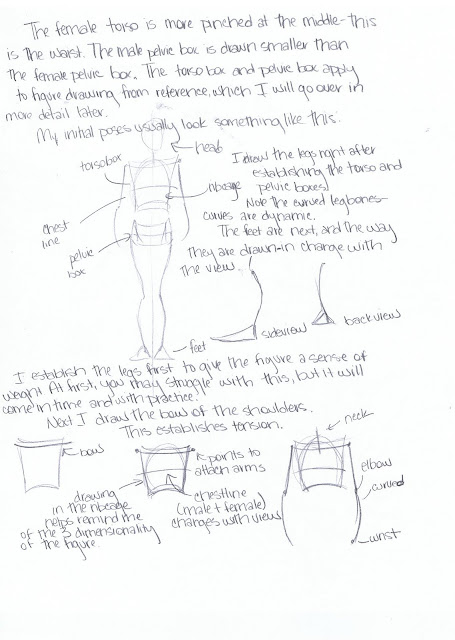 The female torso is more pinched at the middle-this
is the waist. The male pelvic box is drawn smaller than
the female pelvic box. The torso box and pelvic box apply
to figure drawing from reference, which I will go over in
more detail later.
My initial poses usually look something like this:
head
torsobox
ribcage
chest
line
pelvic
box
I draw the legs right after
establishing the torso and
pelvic boxes.
Note the curved legbones-
curves are dynamic.
The feet are next, and the way
they are drawn-in change with
the view.
sideview
backview
feet
I establish the legs first to give the figure a sense of
weight. At first, you may struggle with this, but it will
come in time and with practice!
Next I draw the bow of the shoulders.
This establishes tension.
bow
points to
attach arms
neck
elbow
curved
wrist
drawing
in the ribcage
helps remind me
of the 3 dimensionality
of the figure.
chestline
(male + female)
changes with view